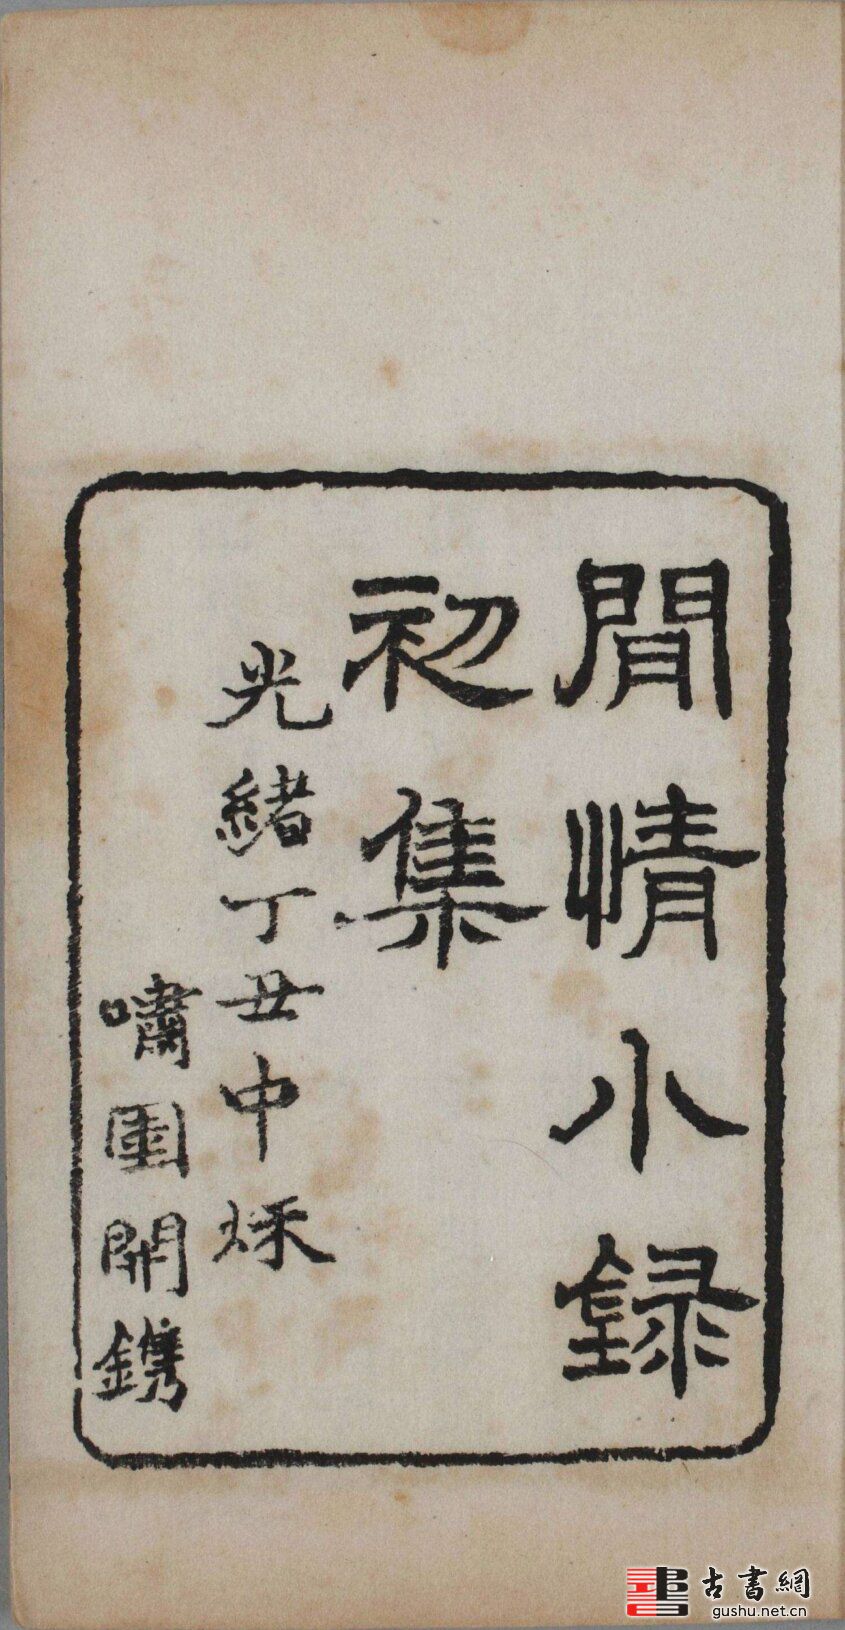 閒情小錄
初集
光緒丁丑中烁
嘯園開鐫
古書網
gushu.net.cn